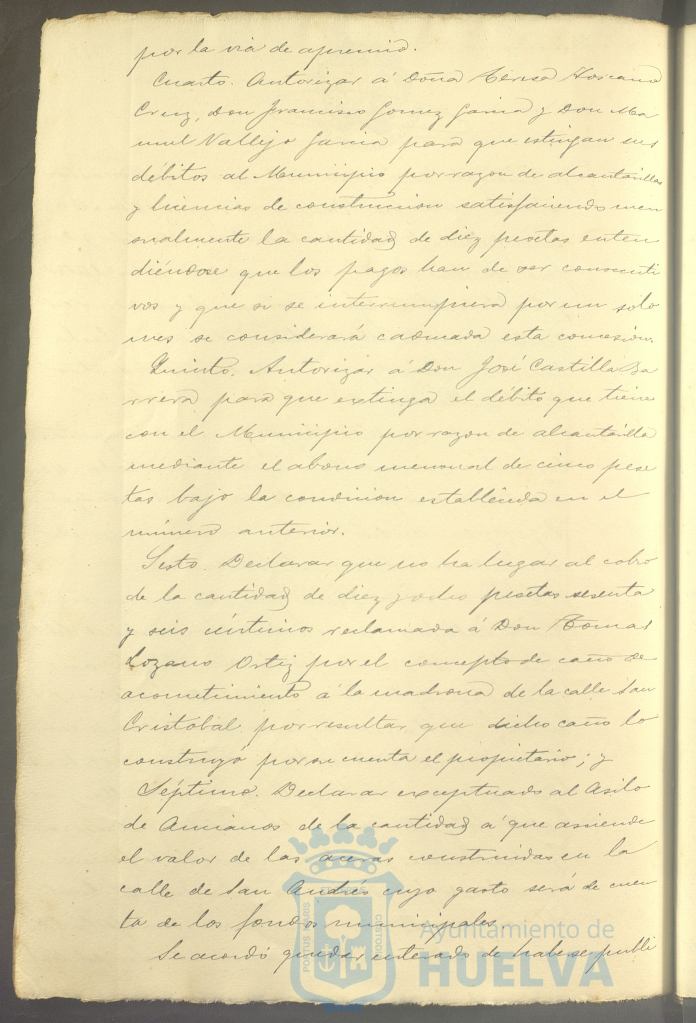 por la via de apremio.
Cuarto. Autorizar á Doña Teresa Toscano
Cruz, Don Francisco Gomez Garcia y Don Ma
nuel Vallejo Garcia para que estingan sus
débitos al Municipio por razon de alcantarillas
y licencias de construccion satisfaciendo men
sualmente la cantidad de diez pesetas enten
diéndose que los pagos han de ser consecuti
vos y que si se interrumpiera por un solo
mes se considerará caducada esta concesion.
Quinto. Autorizar á Don José Castilla Ba
rrera para que extinga el débito que tiene
con el Municipio por razon de alcantarilla
mediante el abono mensual de cinco pese
tas bajo la condicion establecida en el
número anterior.
Sesto. Declarar que no ha lugar al cobro
de la cantidad de diez y ocho pesetas sesenta
y seis céntimos reclamada á Don Tomas
Lozano Ortiz por el concepto de caño de
acometimiento á la madrona de la calle San
Cristobal por resultar que dicho caño lo
construyó por su cuenta el propietario; y
Séptimo. Declarar exceptuado al Asilo
de Ancianos de la cantidad á que asciende
el valor de las aceras construidas en la
calle de San Andrés cuyo gasto será de cuen
ta de los fondos municipales.
Se acordó quedar enterado de haberse publi
PORTUS MARIS
CUSTODIA
Ayuntamiento de
HUELVA